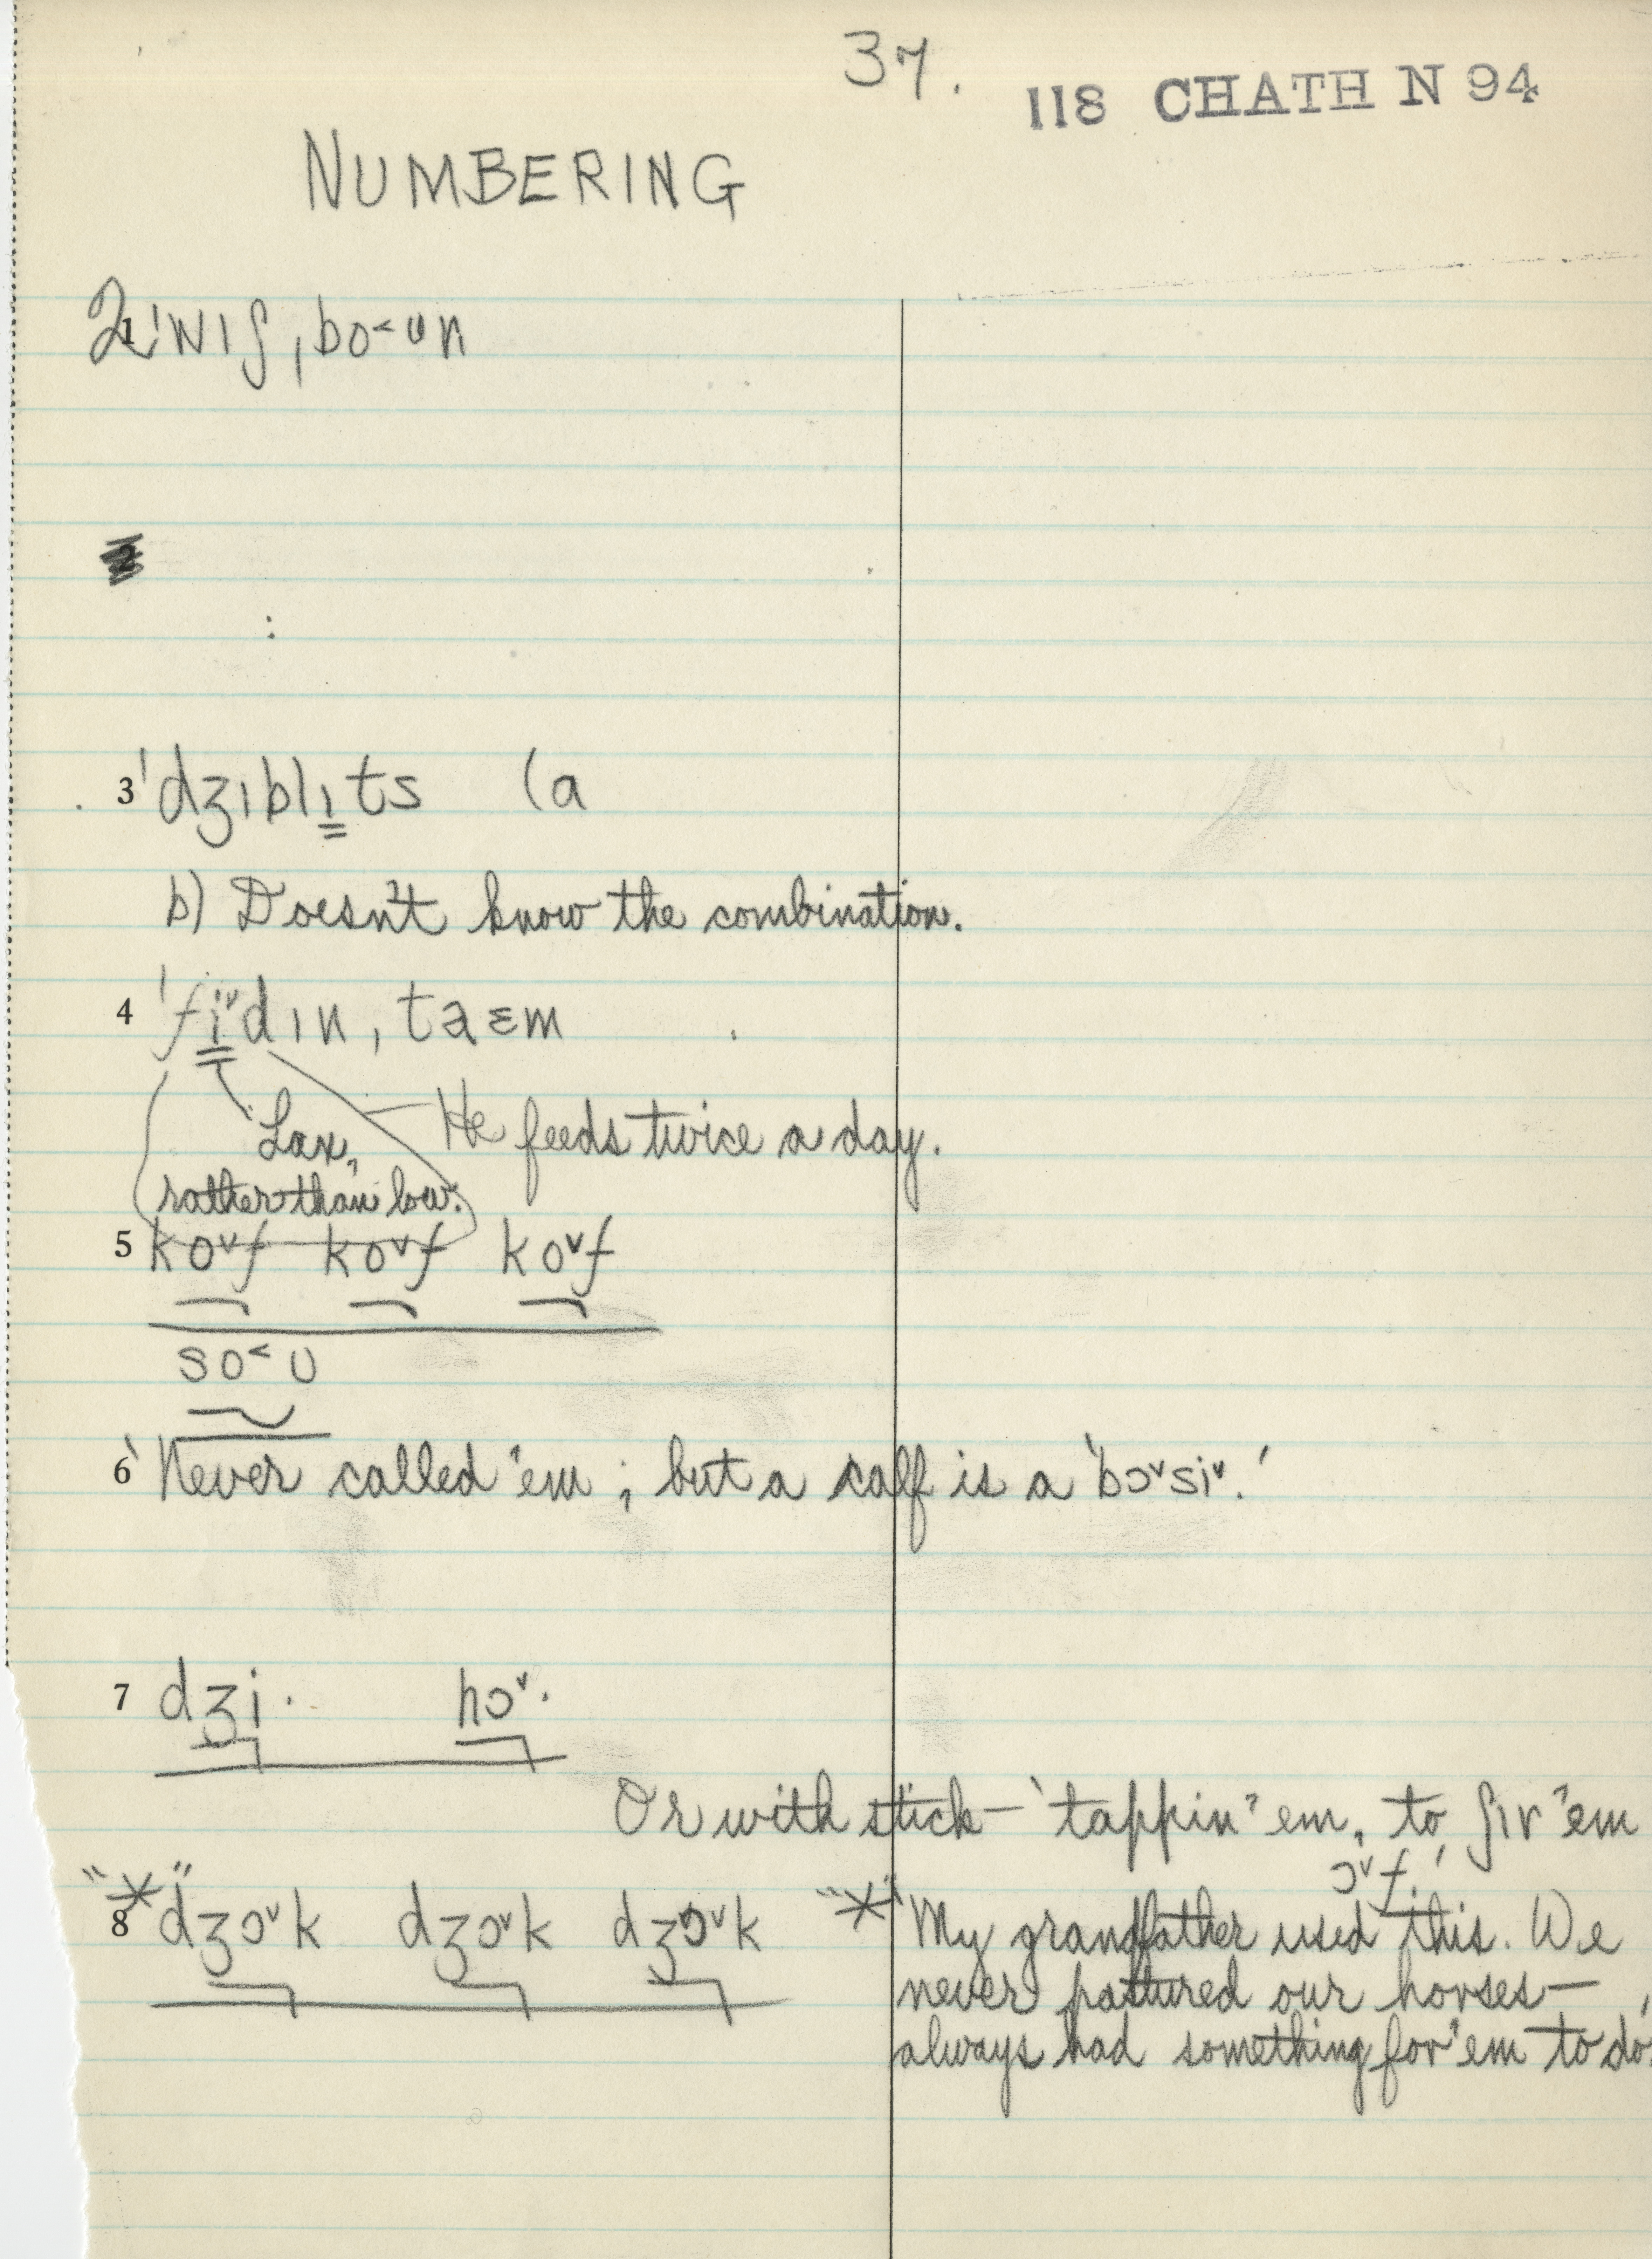 37.
118 CHATH N 94
NUMBERING
2 ˈwɪʃ, bo˂ʊn
3 ˈdʒɪblɪ̳ts (a
b) Doesn't know the combination.
4 ˈfi̳ˇdɪn, taɛm
Lax, He feeds twice a day.
rather than low.
5 koˇf koˇf koˇf
so˂ʊ
6 'Never called 'em; but a calf is a 'bɔˇsiˇ.'
7 dʒi· hɔˇ·
Or with stick — 'tappin' 'em, to ʃɪr 'em
ɔˇf.'
8 "*" dʒɔˇk dʒɔˇk dʒɔˇk "*" 'My grandfather used this. We
never pastured our horses —
always had something for 'em to do.'